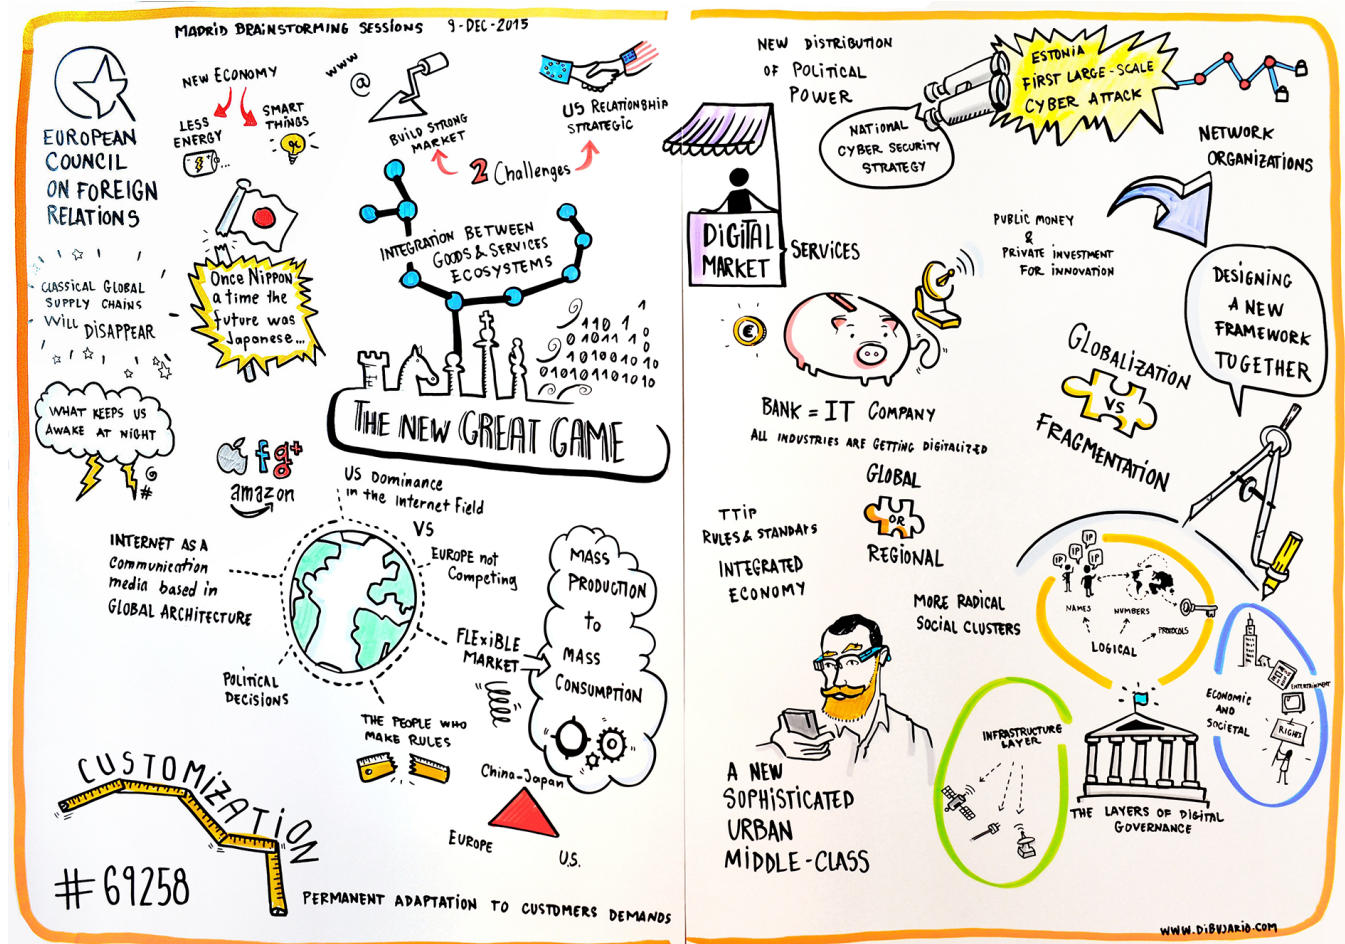 MADRID BRAINSTORMING SESSIONS 9-DEC-2015
EUROPEAN
COUNCIL
ON FOREIGN
RELATIONS
NEW ECONOMY
LESS
ENERGY
SMART
THINGS
www
@
BUILD STRONG
MARKET
US RELATIONSHIP
STRATEGIC
2 Challenges
INTEGRATION BETWEEN
GOODS & SERVICES
ECOSYSTEMS
CLASSICAL GLOBAL
SUPPLY CHAINS
WILL DISAPPEAR
Once Nippon
a time the
future was
Japanese...
110 1 0
01011 10
10100101 0
010101101010
THE NEW GREAT GAME
WHAT KEEPS US
AWAKE AT NIGHT
@
#
f g+
amazon
US DOMINANCE
in the Internet Field
VS
EUROPE not
Competing
INTERNET AS A
communication
media based in
GLOBAL ARCHITECTURE
FLEXIBLE
MARKET
MASS
PRODUCTION
to
MASS
CONSUMPTION
POLITICAL
DECISIONS
THE PEOPLE WHO
MAKE RULES
China-Japan
EUROPE
U.S.
CUSTOMIZATION
#69258
PERMANENT ADAPTATION TO CUSTOMERS DEMANDS
NEW DISTRIBUTION
OF POLITICAL
POWER
ESTONIA
FIRST LARGE-SCALE
CYBER ATTACK
NATIONAL
CYBER SECURITY
STRATEGY
NETWORK
ORGANIZATIONS
DIGITAL
MARKET
SERVICES
PUBLIC MONEY
&
PRIVATE INVESTMENT
FOR INNOVATION
DESIGNING
A NEW
FRAMEWORK
TOGETHER
€
BANK = IT COMPANY
ALL INDUSTRIES ARE GETTING DIGITALIZED
GLOBALIZATION
VS
FRAGMENTATION
GLOBAL
OR
REGIONAL
TTIP
RULES & STANDARTS
INTEGRATED
ECONOMY
MORE RADICAL
SOCIAL CLUSTERS
IP IP IP
NAMES
NUMBERS
PROTOCOLS
LOGICAL
ECONOMIC
AND
SOCIETAL
ENTERTAINMENT
RIGHTS
INFRASTRUCTURE
LAYER
THE LAYERS OF DIGITAL
GOVERNANCE
A NEW
SOPHISTICATED
URBAN
MIDDLE-CLASS
WWW.DIBUJARIO.COM